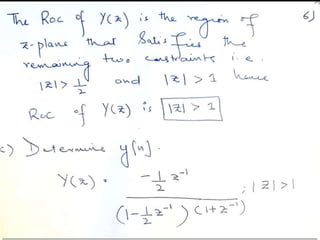 The ROC of Y(z) is the region of 6)
z-plane that Satisfies the
remaining two constraints i.e.
|z| > 1/2 and |z| > 1 hence
ROC of Y(z) is |z| > 1
c) Determine y[n].
Y(z) = (-1/2 z⁻¹) / ((1 - 1/2 z⁻¹)(1 + z⁻¹)) ; |z| > 1